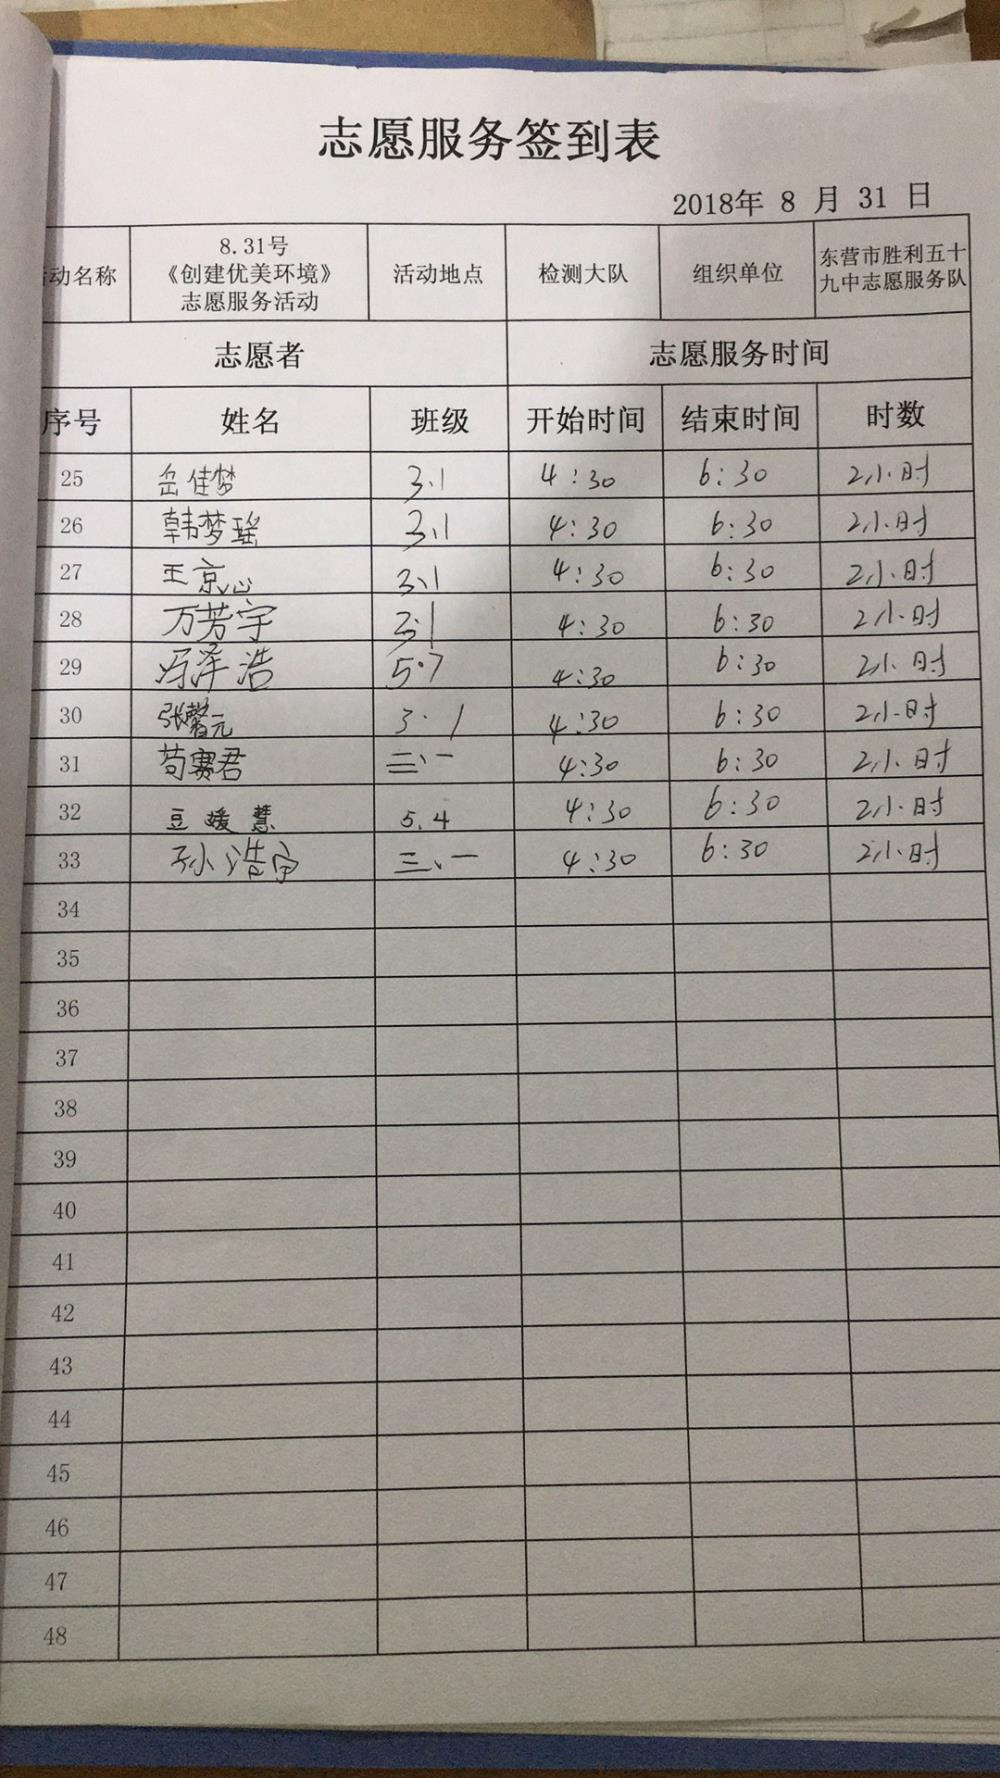 志愿服务签到表
2018年 8 月 31 日
动名称 8.31号 《创建优美环境》 志愿服务活动 活动地点 检测大队 组织单位 东营市胜利五十九中志愿服务队
志愿者 志愿服务时间
序号 姓名 班级 开始时间 结束时间 时数
25 岳佳梦 3.1 4:30 6:30 2小时
26 韩梦瑶 3.1 4:30 6:30 2小时
27 王京心 3.1 4:30 6:30 2小时
28 万芳宇 3.1 4:30 6:30 2小时
29 冯泽浩 5.7 4:30 6:30 2小时
30 张馨元 3.1 4:30 6:30 2小时
31 苟赛君 三、一 4:30 6:30 2小时
32 豆媛慧 5.4 4:30 6:30 2小时
33 孙浩宇 三、一 4:30 6:30 2小时
34
35
36
37
38
39
40
41
42
43
44
45
46
47
48